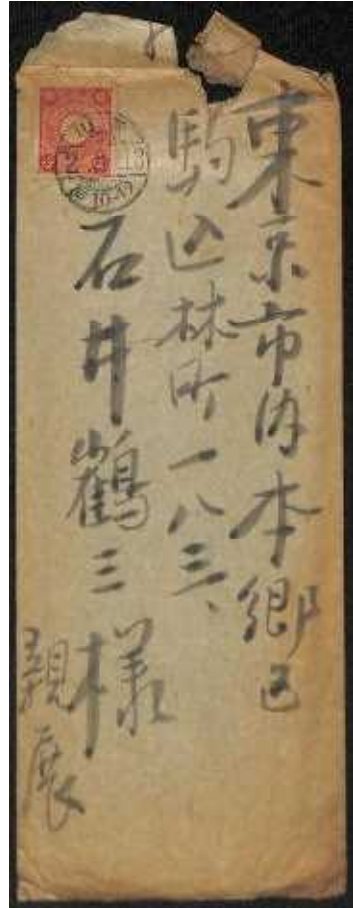 東京市内本郷区
駒込林町一八三、
石井鶴三様
親展